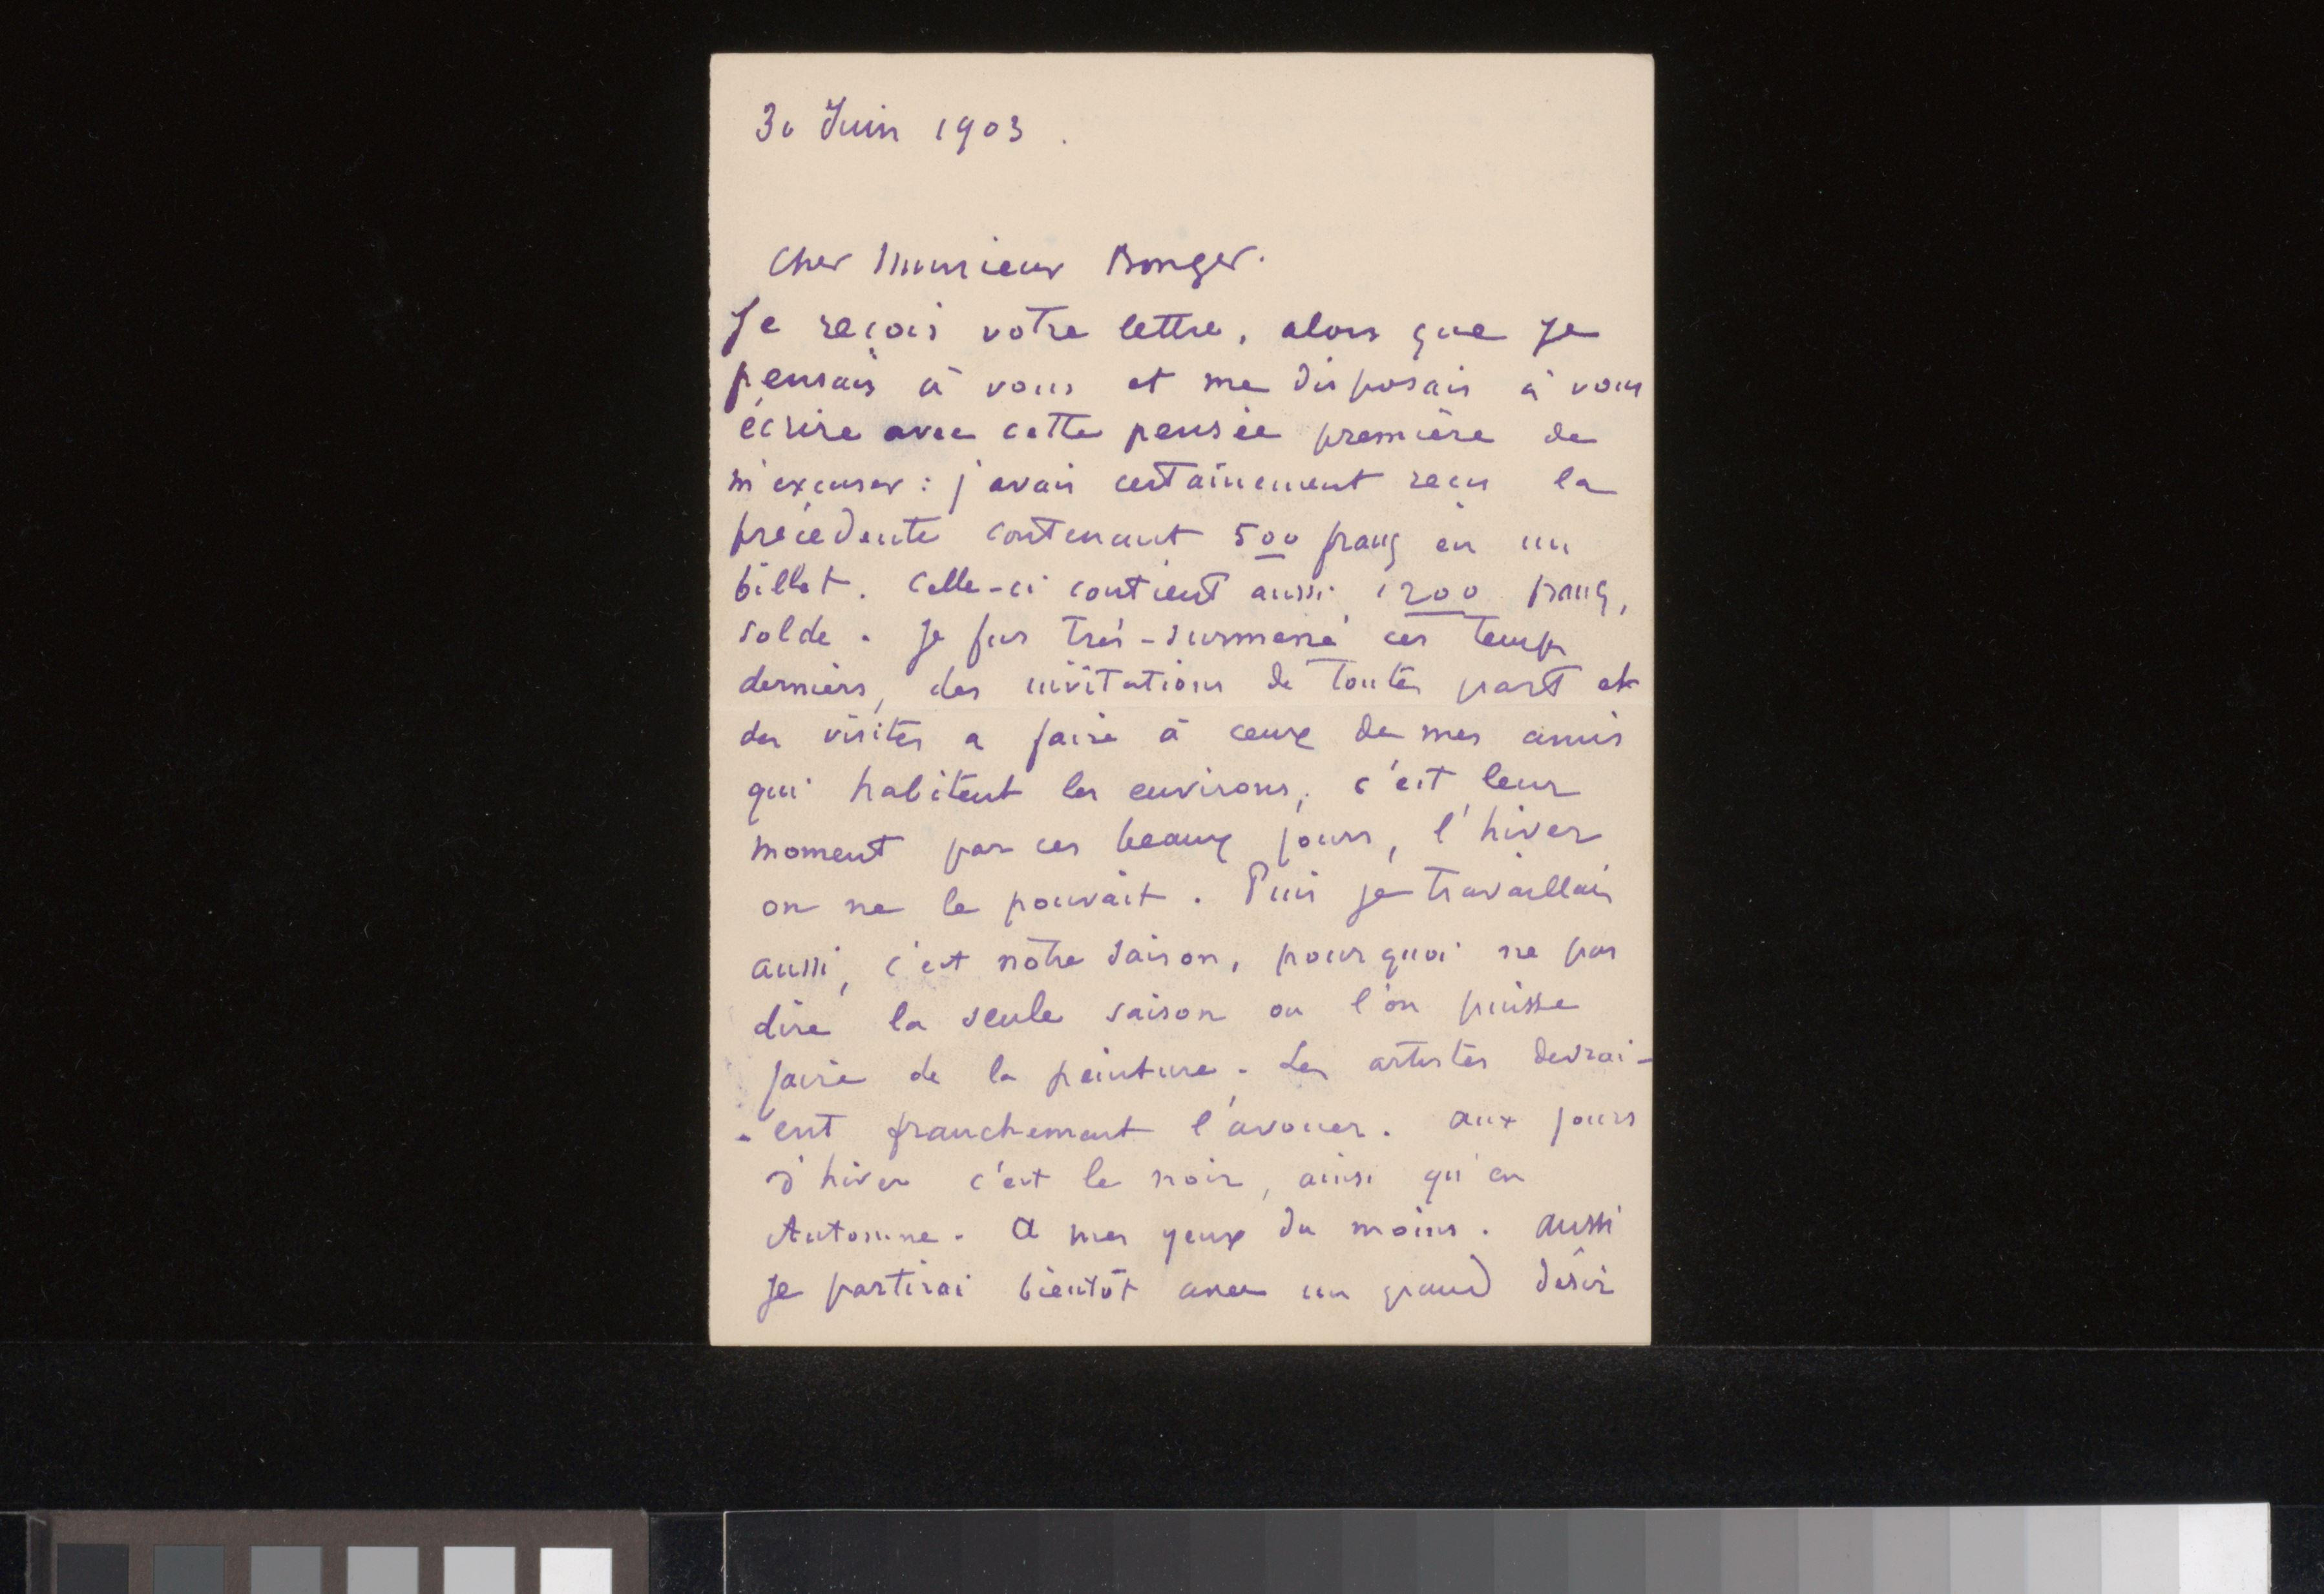 30 Juin 1903.
Cher Monsieur Bonger.
Je reçois votre lettre, alors que je
pensais à vous et me disposais à vous
écrire avec cette pensée première de
m'excuser : j'avais certainement reçu la
précédente contenant 500 francs en un
billet. Celle-ci contient aussi 1200 francs,
solde. Je fus très-surmené ces temps
derniers, des invitations de toutes part et
des visites a faire à ceux de mes amis
qui habitent les environs, c'est leur
moment par ces beaux jours, l'hiver
on ne le pouvait. Puis je travaillais
aussi, c'est nôtre saison, pourquoi ne pas
dire la seule saison ou l'on puisse
faire de la peinture. Les artistes devrai-
-ent franchement l'avouer. aux jours
d'hiver c'est le noir, ainsi qu'en
Automne. A mes yeux du moins. aussi
je partirai bientôt avec un grand désir